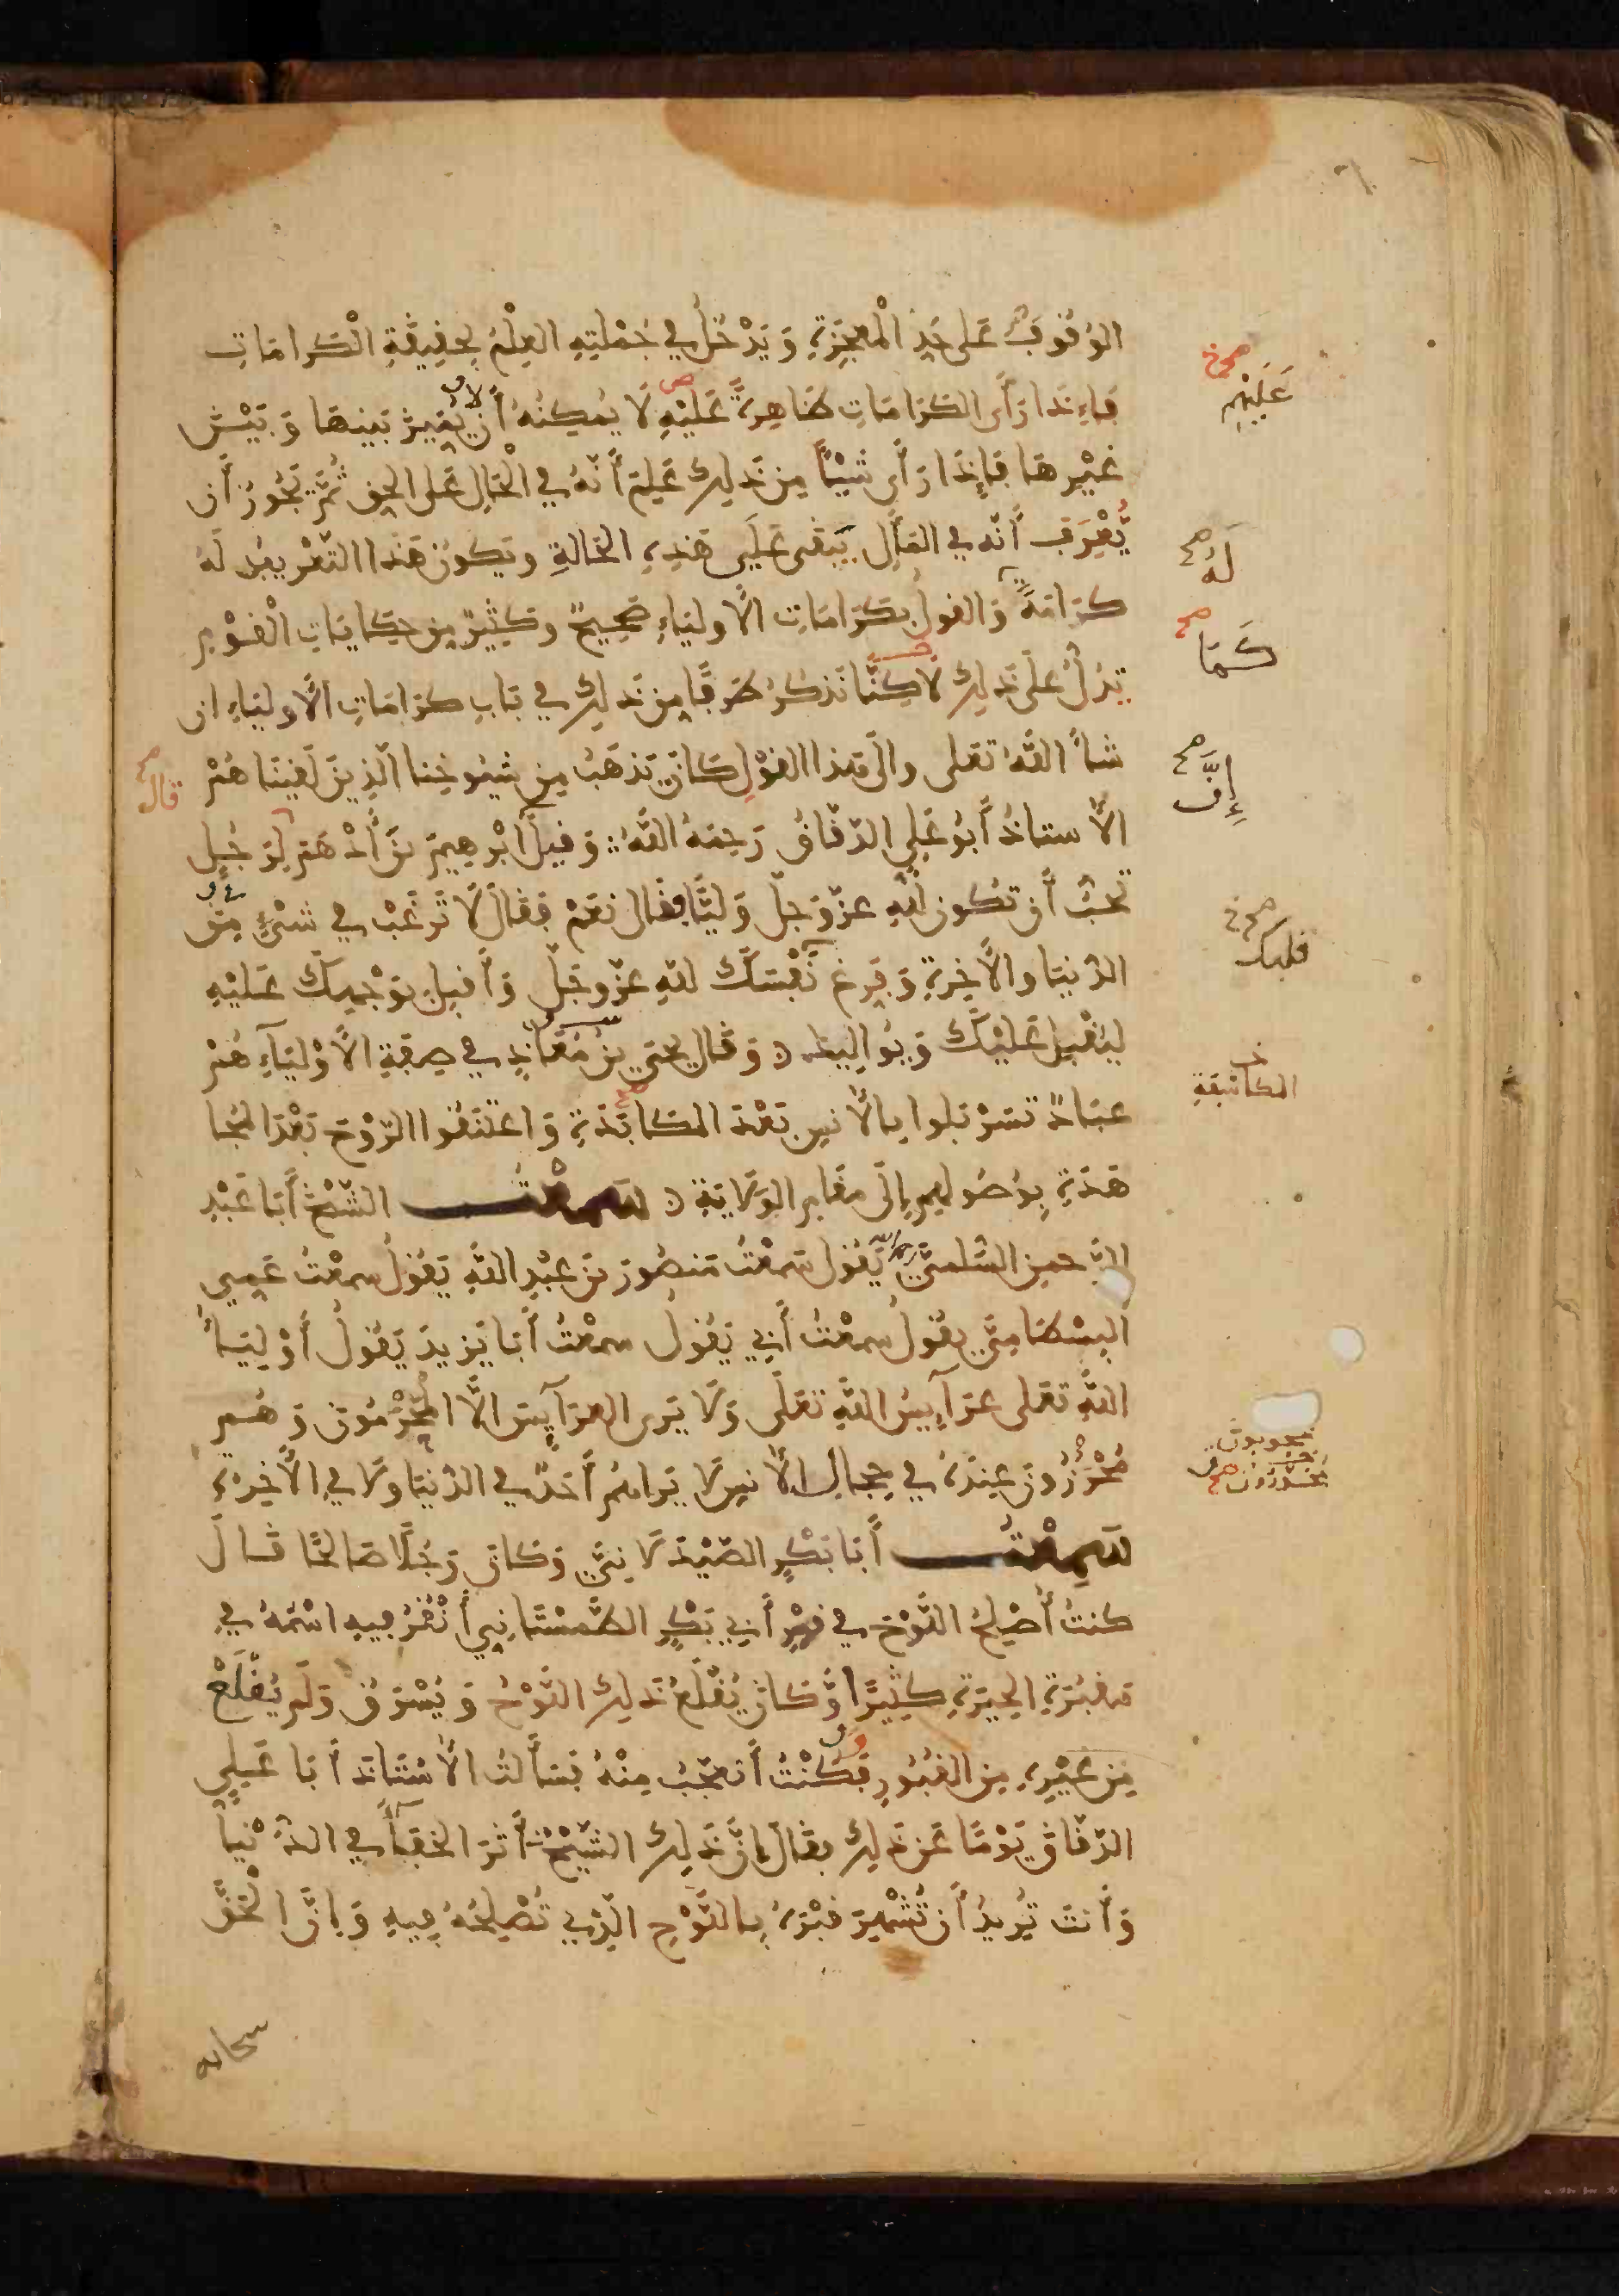 الوُقُوفَ عَلى حَدِ الْمعجزَةِ وَيَدْخُلُ في جُمْلتِهِ العِلْمُ بِحقِيقَةِ الْكَرامَاتِ
فإذا رَأى الكرَامَاتِ ظَاهِرةً عَليْهِ لَا يُمكِنُهُ أن يُمَيِّزَ بَينهَا وَبَيْنَ
غيْرِهَا فإذا رَأى شَيْئًا مِن ذَلِكَ عَلِمَ أَنَّهُ في الْحَالِ عَلى الحقِ ثُمَّ يَجُوزُ أن
يُعْرَفَ أَنَّه في المآلِ يَبْقى عَلَى هَذِهِ الحَالةِ وتكونُ هَذَا التعْريفُ لَهُ
كرَامَةً وَالقول بكَرَامَاتِ الأولِيَاءِ صَحِيحٌ وكَثِيرٌ مِن حِكَايَاتِ القَوْمِ
تدُلُ عَلَى ذَلِكَ لاكِنَّا نَذكُرُ طرفًا مِن ذَلِكَ في بَابِ كرَامَاتِ الأولِيَاءِ ان
شاءَ اللَّهُ تعَلى وإلَى هذا القوْلِ كَانَ يَذهَبُ مِن شيُوخِنا الّذِينَ لَقِينَاهُمْ
الأستاذُ أَبُو عَلِي الدّقاقُ رَحِمَهُ اللَّهُ وَقِيلَ إبْرهِيمَ بنَ أَدْهَمَ لِرَجُلٍ
تحبُّ أن تكون لله عزّ وَجلّ وَليًّا فقال نعَمْ فقالَ لَا تَرْغَبْ في شيْءٍ مِنَ
الدُنيَا والأخِرةِ وَفرِغ نَفْسَكَ للهِ عزّ وجَلّ وَأَقبِل بوَجْهِكَ عَليْهِ
ليُقْبِلَ عَليْكَ وَيُوالِيكَ وَقال يحيَى بن مُعَاذٍ في صِفَةِ الأَوْلِيَاءِ هُمْ
عبَادٌ تسَرْبَلوا بالأنسِ بَعْدَ المكَابَدَةِ وَاعتَنَقُوا الرَّوْحَ بَعْدَ المُجَا
هَدَةِ بِوُصُولِهِم إلَى مقَامِ الوَلَايَةِ سَمِعْتُ الشَّيْخَ أَبَا عَبْدِ
الرَّحمنِ السُّلميَّ يَقُول سَمعْتُ مَنصُورَ بنَ عبْدِ اللَّهِ يَقُولُ سمعْتُ عَمِي
البِسْطَامِيَّ يقُولُ سمعْتُ أَبِي يَقُولُ سمعْتُ أَبَا يَزِيدَ يَقُولُ أَوْلِيَاءُ
اللَّهِ تعَلى عرَآئِسُ اللَّهِ تعَلَى وَلَا يَرى العرَآئِسَ إلَّا المُحْرَمُونَ وَهُم
مُخَدَّرُونَ عِندَهُ في حِجَالِ الأنسِ لَا يَرَاهُمْ أَحَدٌ في الدُنيَا ولَا في الأَخِرَةِ
سَمِعْتُ أَبَا بَكْرٍ الصَّيْدَلَانِيَّ وَكَانَ رَجُلًا صَالحًا قَالَ
كنتُ أُصْلِحُ اللَّوْحَ في قبْرِ أَبِي بَكْرٍ الطَّمَسْتَانِيِّ أَنْقُرُ فِيهِ اسْمَهُ في
مقبُرَةِ الحِيرَةِ كثِيرًا وَّكَانَ يُقْلَعُ ذَلِكَ اللَّوْحُ وَيُسْرَقُ وَلَم يُقْلَعْ
مِن غَيْرِهِ مِنَ القُبُورِ فَكُنْتُ أَتَعَجَّبُ مِنْهُ فسَأَلتُ الأُسْتَاذَ أَبَا عَلِي
الدّقَاقَ يَوْمًا عَن ذَلِكَ فقَالَ إنَّ ذَلِكَ الشَّيْخَ أَثرَ الخَفَاءَ في الدُّنْيَا
وَأَنتَ تُرِيدُ أَن تُشْهِرَ قبْرَهُ بِاللَّوْحِ الّذِي تُصْلِحُهُ فِيهِ وَإنَّ الحَقَّ
سبحانه
صح خ
عَلَيْهِم
لَهُ صح
كَمَا صح
إِنَّ صح
قال صح
قلبك صح خ
المكاشفة خ
محجوبون خ